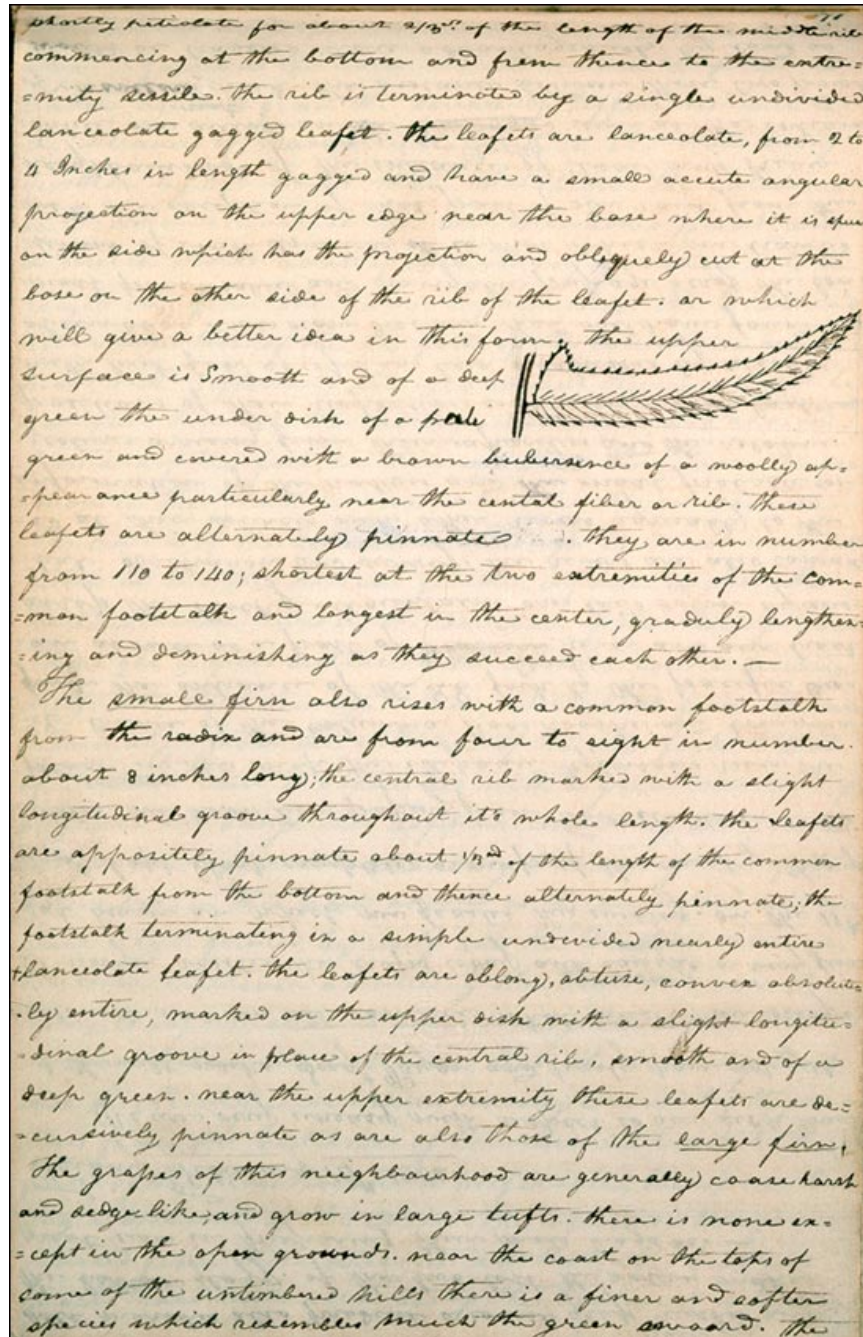 shortly petiolate for about 2/3rds of the length of the middle rib
commencing at the bottom and from thence to the extre=
=mity sessile. the rib is terminated by a single undivided
lanceolate gagged leafet. the leafets are lanceolate, from 2 to
4 Inches in length gagged and have a small accute angular
projection on the upper edge near the base where it is spue
on the side which has the projection and obliquely cut at the
base on the other side of the rib of the leafet. or which
will give a better idea in this form the upper
surface is Smooth and of a deep
green the under disk of a pale
green and covered with a brown bubersence of a woolly ap=
=pearance particularly near the cental fiber or rib. these
leafets are alternately pinnate . they are in number
from 110 to 140; shortest at the two extremities of the com=
=mon footstalk and longest in the center, graduly lengthen=
=ing and deminishing as they succeed each other. —
The small firn also rises with a common footstalk
from the radix and are from four to eight in number.
about 8 inches long; the central rib marked with a slight
longitudinal groove throughout it's whole length. the leafets
are oppositely pinnate about 1/3rd of the length of the common
footstalk from the bottom and thence alternately pinnate; the
footstalk terminating in a simple undevided nearly entire
lanceolate leafet. the leafets are oblong, obtuse, convex absolute=
=ly entire, marked on the upper disk with a slight longitu=
=dinal groove in place of the central rib, smooth and of a
deep green. near the upper extremity these leafets are de=
=cursively pinnate as are also those of the large firn.
The grapes of this neighbourhood are generally coase harsh
and sedge like, and grow in large tufts. there is none ex=
=cept in the open grounds. near the coast on the tops of
some of the untimbered hills there is a finer and softer
species which resembles much the green swoard. the